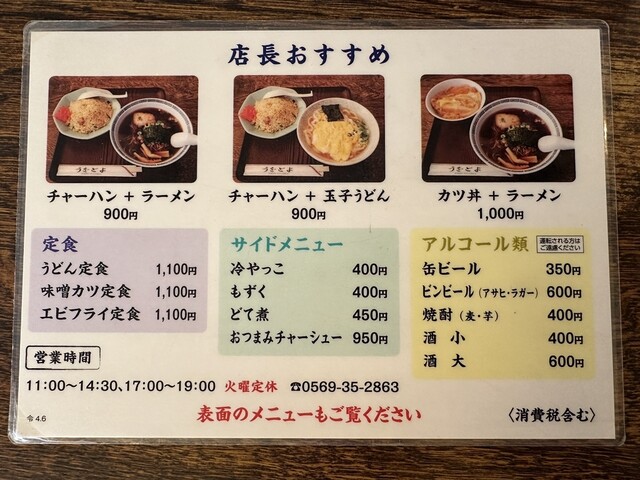 店長おすすめ
チャーハン + ラーメン
900円
チャーハン + 玉子うどん
900円
カツ丼 + ラーメン
1,000円
定食
うどん定食 1,100円
味噌カツ定食 1,100円
エビフライ定食 1,100円
サイドメニュー
冷やっこ 400円
もずく 400円
どて煮 450円
おつまみチャーシュー 950円
アルコール類 運転される方は
ご遠慮ください
缶ビール 350円
ビンビール(アサヒ・ラガー) 600円
焼酎(麦・芋) 400円
酒 小 400円
酒 大 600円
営業時間
11:00〜14:30、17:00〜19:00 火曜定休 ☎0569-35-2863
令4.6 表面のメニューもご覧ください 〈消費税含む〉